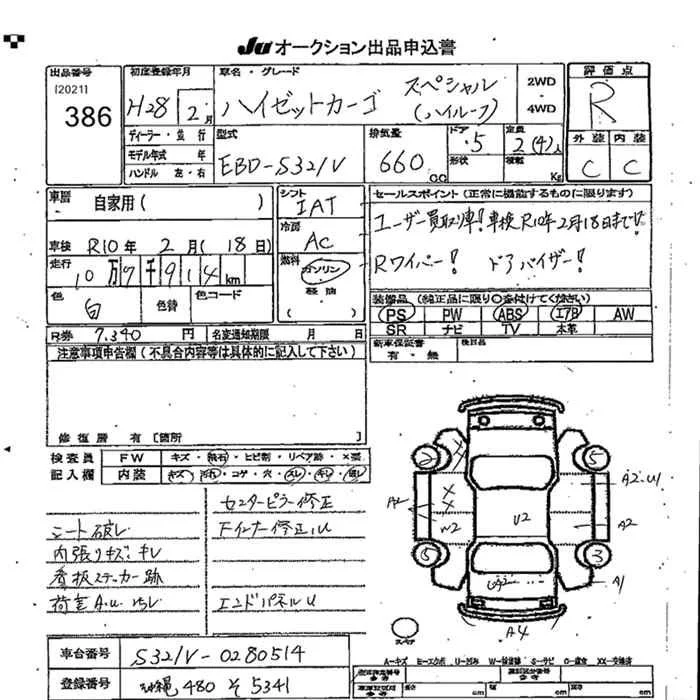 Ju オークション出品申込書
出品番号
[2021]
386
初度登録年月
H28 2月
車名・グレード
ハイゼットカーゴ
スペシャル
(ハイルーフ)
2WD
4WD
評価点
R
外装 内装
C C
ディーラー・並行
モデル年式 年
ハンドル 左・右
型式
EBD-S321V
排気量
660 C.C
ドア
5
形状
定員
2(4)人
積載
Kg
車歴
自家用( )
車検 R10年 2月(18日)
走行 10万7千914km
色 白 色替 色コード
R券 7,340円 名変通知期限 月 日
シフト
IAT
冷房
AC
燃料
ガソリン
軽油
セールスポイント(正常に機能するものに限ります)
ユーザー買取車! 車検R10年2月18日まで!!
Rワイパー! ドアバイザー!
装備品(純正品に限り○を付けてください)
PS PW ABS エアB AW
SR ナビ TV 本革
新車保証書
有・無
後日品
注意事項申告欄(不具合内容等は具体的に記入して下さい)
修復歴 有[箇所 ]
検査員
記入欄
FW キズ・飛石・ヒビ割・リペア跡・X要
内装 キズ・汚れ・コゲ・穴・スレ・キレ
シート破レ
内張りキズ・キレ
看板ステッカー跡
荷室A.U
センターピラー修正
Fインナー修正.U
エンドパネルU
車台番号 S321V-0280514
登録番号 沖縄 480 そ 5341
2
5
5
3
X
X
X
A2
W2
U2
A2・U1
A2
A1
A4
スペア
A-キズ E-エクボ U-凹み W-補修跡 S-サビ C-腐食 XX-交換済
cm cm cm